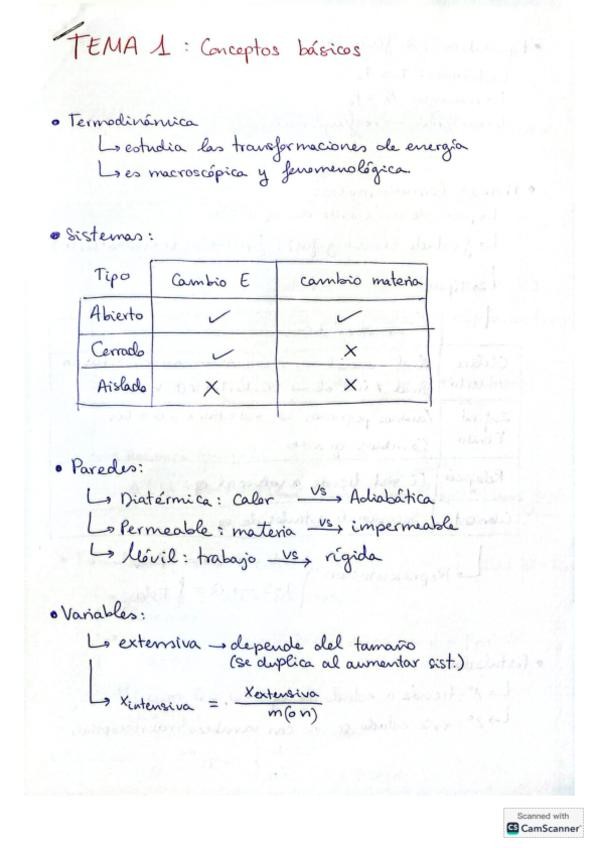 TEMA 1 : Conceptos básicos
• Termodinámica
↳ estudia las transformaciones de energía
↳ es macroscópica y fenomenológica
• Sistemas:
Tipo Cambio E cambio materia
Abierto ✓ ✓
Cerrado ✓ X
Aislado X X
• Paredes:
↳ Diatérmica: calor vs→ Adiabática
↳ Permeable: materia vs→ impermeable
↳ Móvil: trabajo vs→ rígida
• Variables:
↳ extensiva → depende del tamaño
(se duplica al aumentar sist.)
↳ Xintensiva = Xextensiva / m(o n)
Scanned with
CS CamScanner